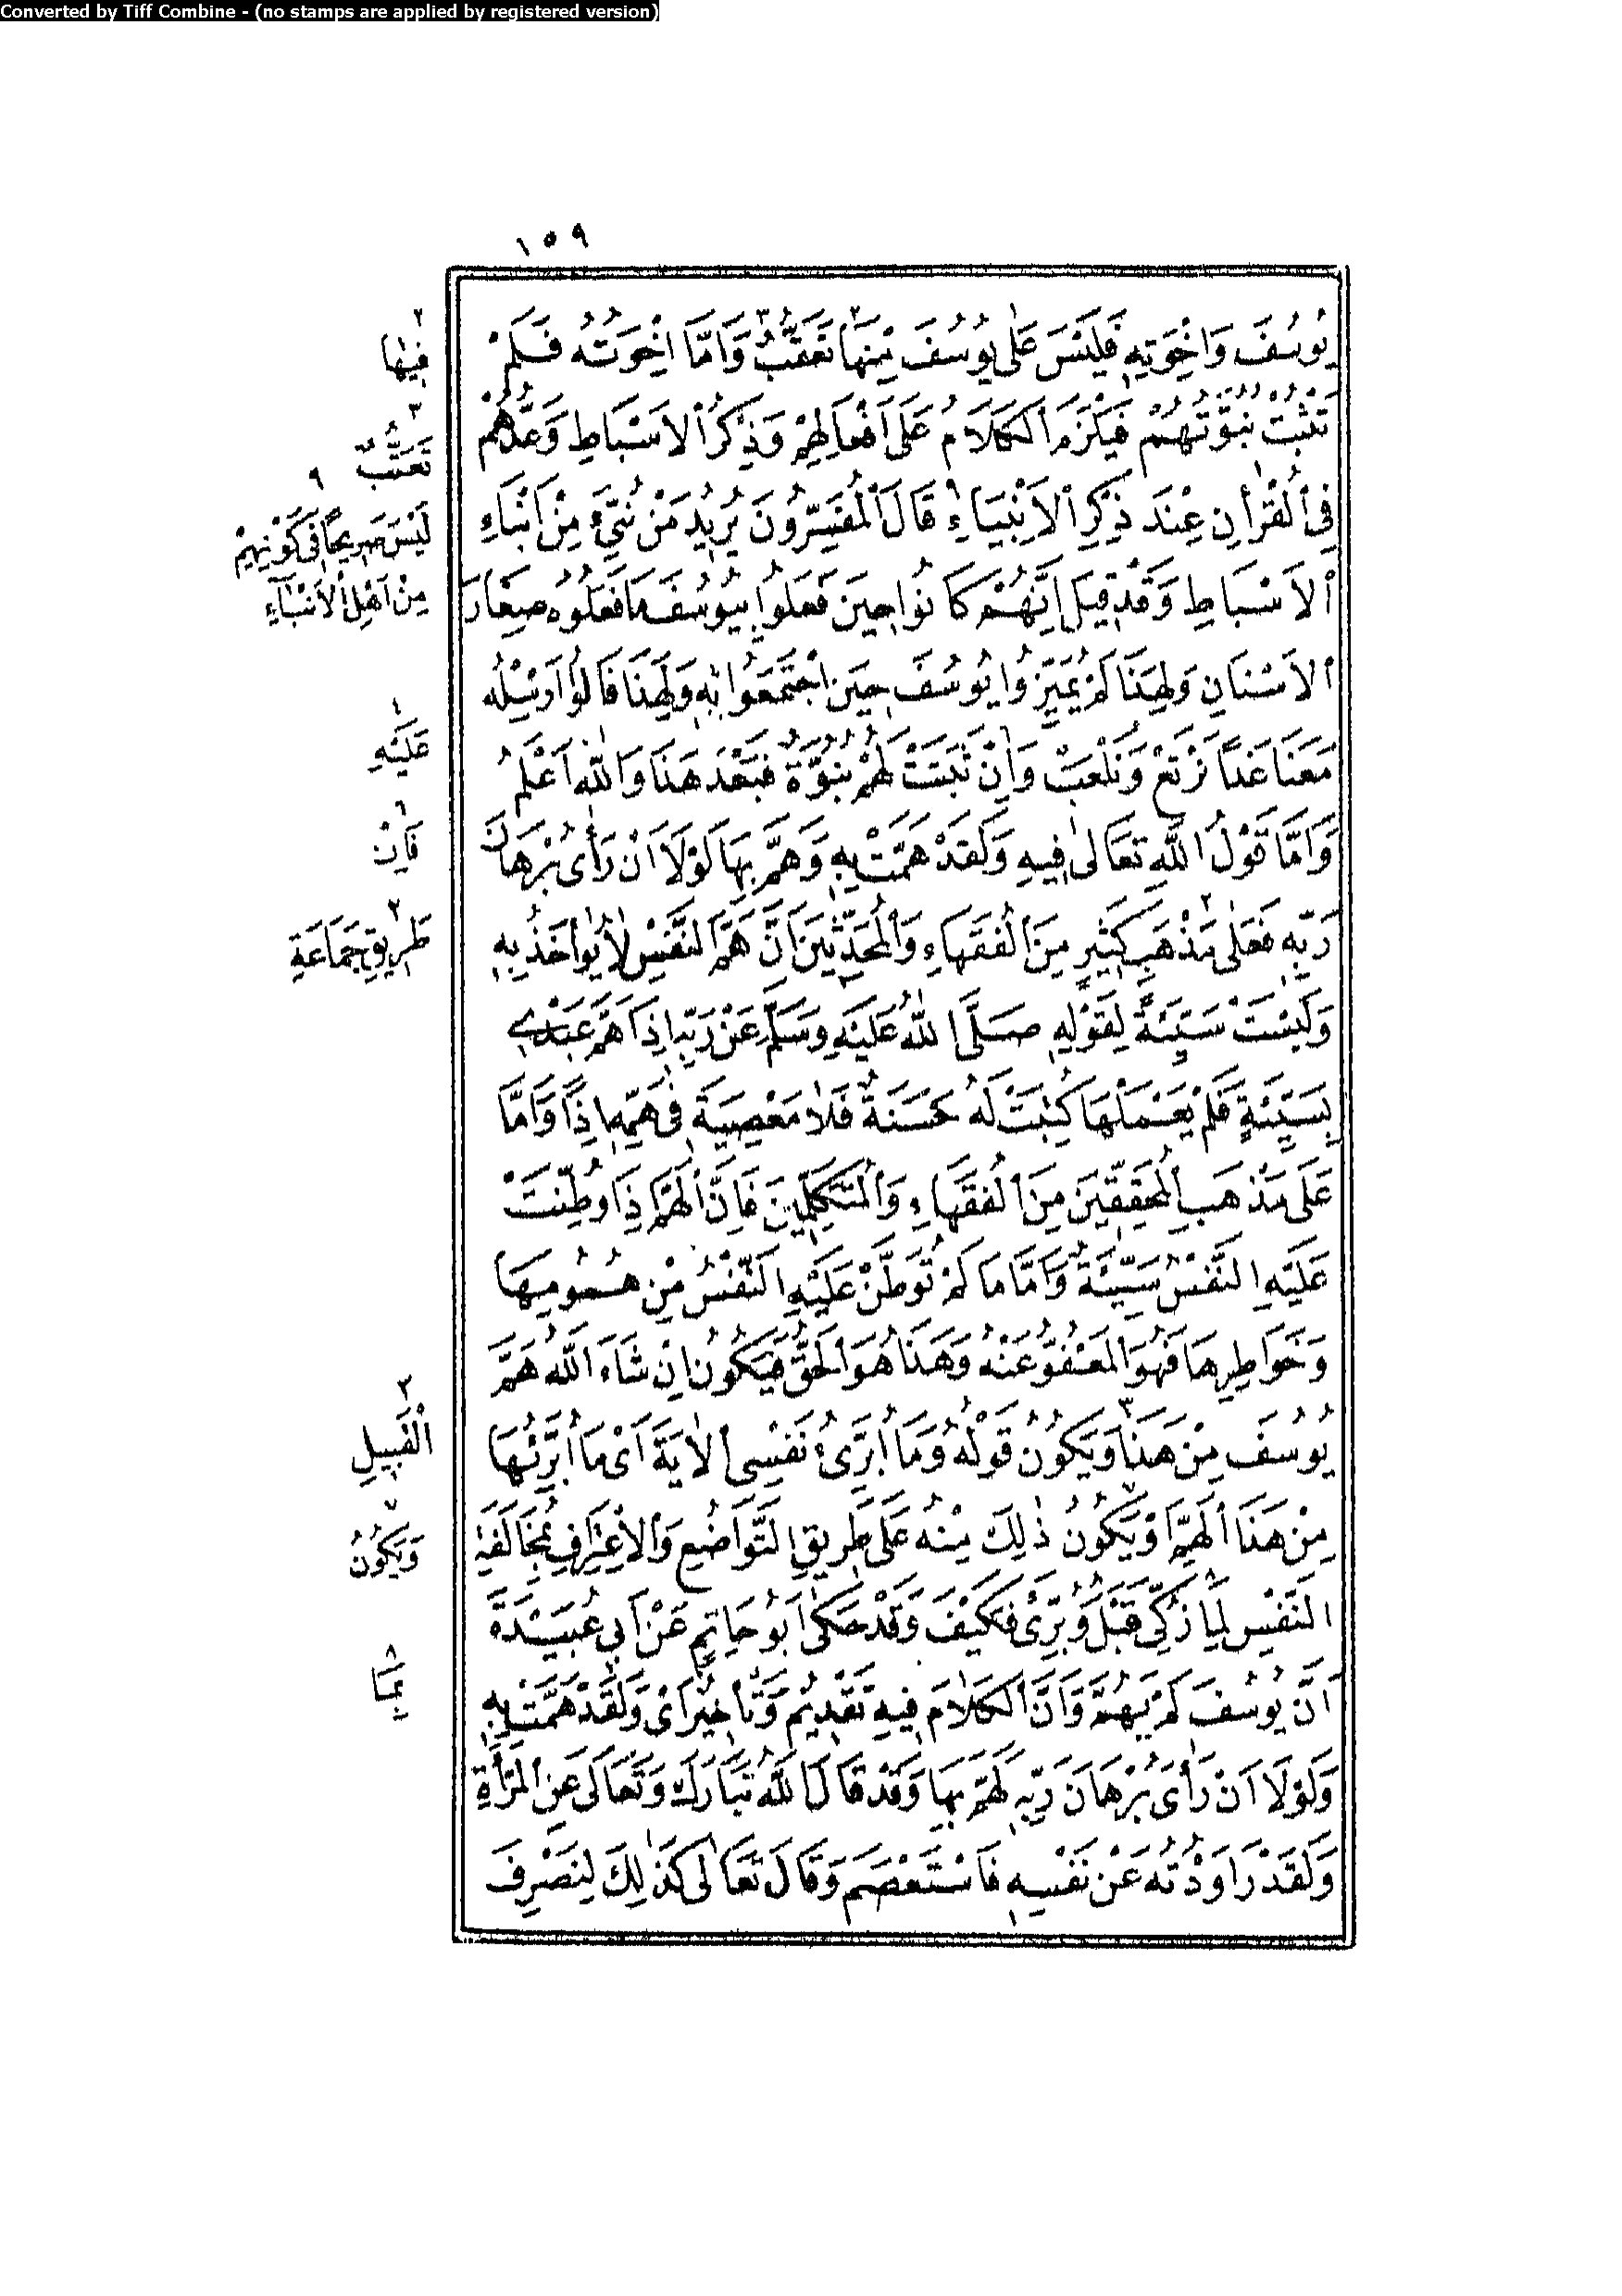 Converted by Tiff Combine - (no stamps are applied by registered version)
١٥٩
يُوسُفَ وَاِخْوَتِهِ فَلَيْسَ عَلٰى يُوسُفَ مِنْهَا تَعَقُّبٌ وَاَمَّا اِخْوَتُهُ فَلَمْ
تَثْبُتْ نُبُوَّتُهُمْ فَيَلْزَمَ الْكَلَامُ عَلَى اَفْعَالِهِمْ وَذِكْرُ الْاَسْبَاطِ وَعَدُّهُمْ
فِى الْقُرْاٰنِ عِنْدَ ذِكْرِ الْاَنْبِيَاءِ ٩ قَالَ الْمُفَسِّرُونَ يُرِيدُ مَنْ نُبِّئَ مِنْ اَبْنَاءِ
الْاَسْبَاطِ وَقَدْ قِيلَ اِنَّهُمْ كَانُوا حِينَ فَعَلُوا بِيُوسُفَ مَا فَعَلُوهُ صِغَارَ
الْاَسْنَانِ وَلِهَذَا لَمْ يُمَيِّزُوا يُوسُفَ حِينَ اجْتَمَعُوا بِهِ وَلِهَذَا قَالُوا اَرْسِلْهُ
مَعَنَا غَدًا نَرْتَعْ وَنَلْعَبْ وَاِنْ ثَبَتَتْ لَهُمْ نُبُوَّةٌ فَبَعْدَ هَذَا وَاللّٰهُ اَعْلَمُ
وَاَمَّا قَوْلُ اللّٰهِ تَعَالٰى فِيهِ وَلَقَدْ هَمَّتْ بِهِ وَهَمَّ بِهَا لَوْلَا اَنْ رَأٰى بُرْهَانَ
رَبِّهِ فَعَلٰى مَذْهَبِ كَثِيرٍ مِنَ الْفُقَهَاءِ وَالْمُحَدِّثِينَ اَنَّ هَمَّ النَّفْسِ لَا يُؤَاخَذُ بِهِ
وَلَيْسَتْ سَيِّئَةً لِقَوْلِهِ صَلَّى اللّٰهُ عَلَيْهِ وَسَلَّمَ عَنْ رَبِّهِ اِذَا هَمَّ عَبْدِى
بِسَيِّئَةٍ فَلَمْ يَعْمَلْهَا كُتِبَتْ لَهُ حَسَنَةٌ فَلَا مَعْصِيَةَ فِى هَمِّهِ اِذًا وَاَمَّا
عَلَى مَذْهَبِ الْمُحَقِّقِينَ مِنَ الْفُقَهَاءِ وَالْمُتَكَلِّمِينَ فَاِنَّ الْهَمَّ اِذَا وُطِّنَتْ
عَلَيْهِ النَّفْسُ سَيِّئَةٌ وَاَمَّا مَا لَمْ تُوَطَّنْ عَلَيْهِ النَّفْسُ مِنْ هُمُومِهَا
وَخَوَاطِرِهَا فَهُوَ الْمَعْفُوُّ عَنْهُ وَهَذَا هُوَ الْحَقُّ فَيَكُونُ اِنْ شَاءَ اللّٰهُ هَمُّ
يُوسُفَ مِنْ هَذَا وَيَكُونُ قَوْلُهُ وَمَا اُبَرِّئُ نَفْسِى الْاٰيَةَ اَىْ مَا اُبَرِّئُهَا
مِنْ هَذَا الْهَمِّ اَوْ يَكُونُ ذٰلِكَ مِنْهُ عَلَى طَرِيقِ التَّوَاضُعِ وَالْاِعْتِرَافِ بِمُخَالَفَةِ
النَّفْسِ لِمَا زُكِّىَ قَبْلُ وَبُرِّئَ فَكَيْفَ وَقَدْ حَكٰى اَبُو حَاتِمٍ عَنْ اَبِى عُبَيْدَةَ
اَنَّ يُوسُفَ لَمْ يَهُمَّ وَاَنَّ الْكَلَامَ فِيهِ تَقْدِيمٌ وَتَأْخِيرٌ اَىْ وَلَقَدْ هَمَّتْ بِهِ
وَلَوْلَا اَنْ رَأَى بُرْهَانَ رَبِّهِ لَهَمَّ بِهَا وَقَدْ قَالَ اللّٰهُ تَبَارَكَ وَتَعَالَى عَنِ الْمَرْأَةِ
وَلَقَدْ رَاوَدْتُهُ عَنْ نَفْسِهِ فَاسْتَعْصَمَ وَقَالَ تَعَالٰى كَذٰلِكَ لِنَصْرِفَ
٢
فِيهَا
٣
تَعَتُّبٌ
٩
لَيْسَ صَرِيحًا فِى كَوْنِهِمْ
مِنْ اَهْلِ الْاَنْبَاۤءِ
عَلَيْهِ
٦
فَاِنْ
٢
طَرِيقِ جَمَاعَةٍ
٣
الْقَبِيلِ
٧
وَيَكُونُ
٨
بِمَا